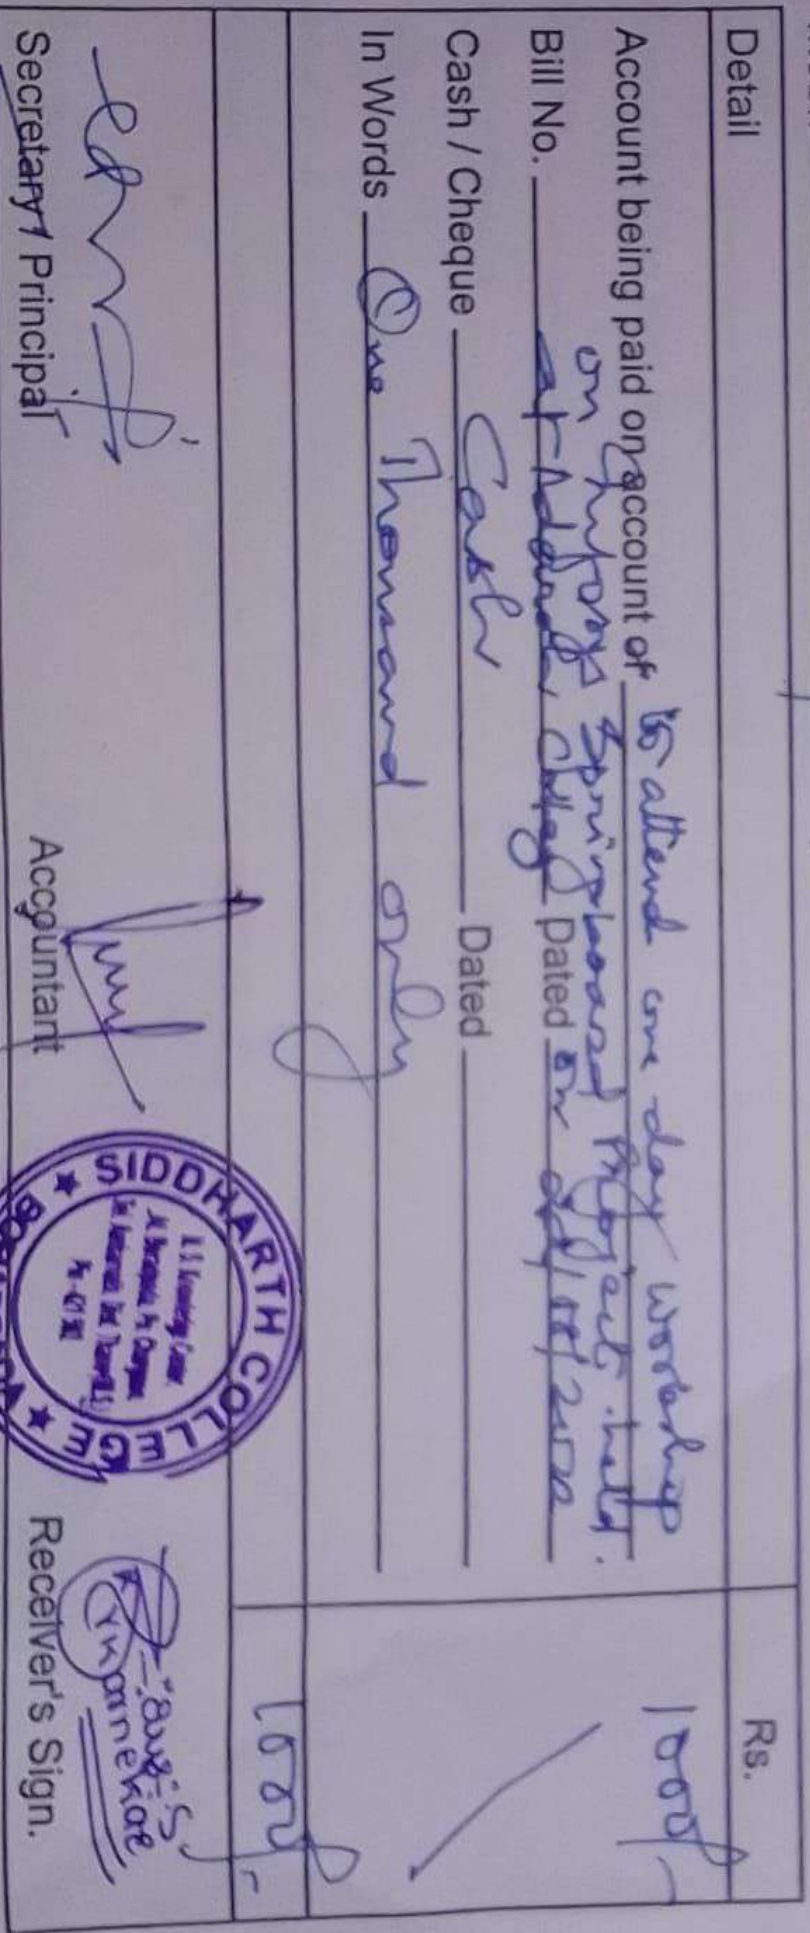 Detail
Rs.
Account being paid on account of to attend one day workshop
1000/-
on Infosys Springboard Project held.
Bill No. at Adarsh College Dated on
Cash / Cheque Cash Dated
In Words One Thousand only
1000/-
Secretary / Principal
Accountant
SIDDHARTH COLLEGE
Receiver's Sign.